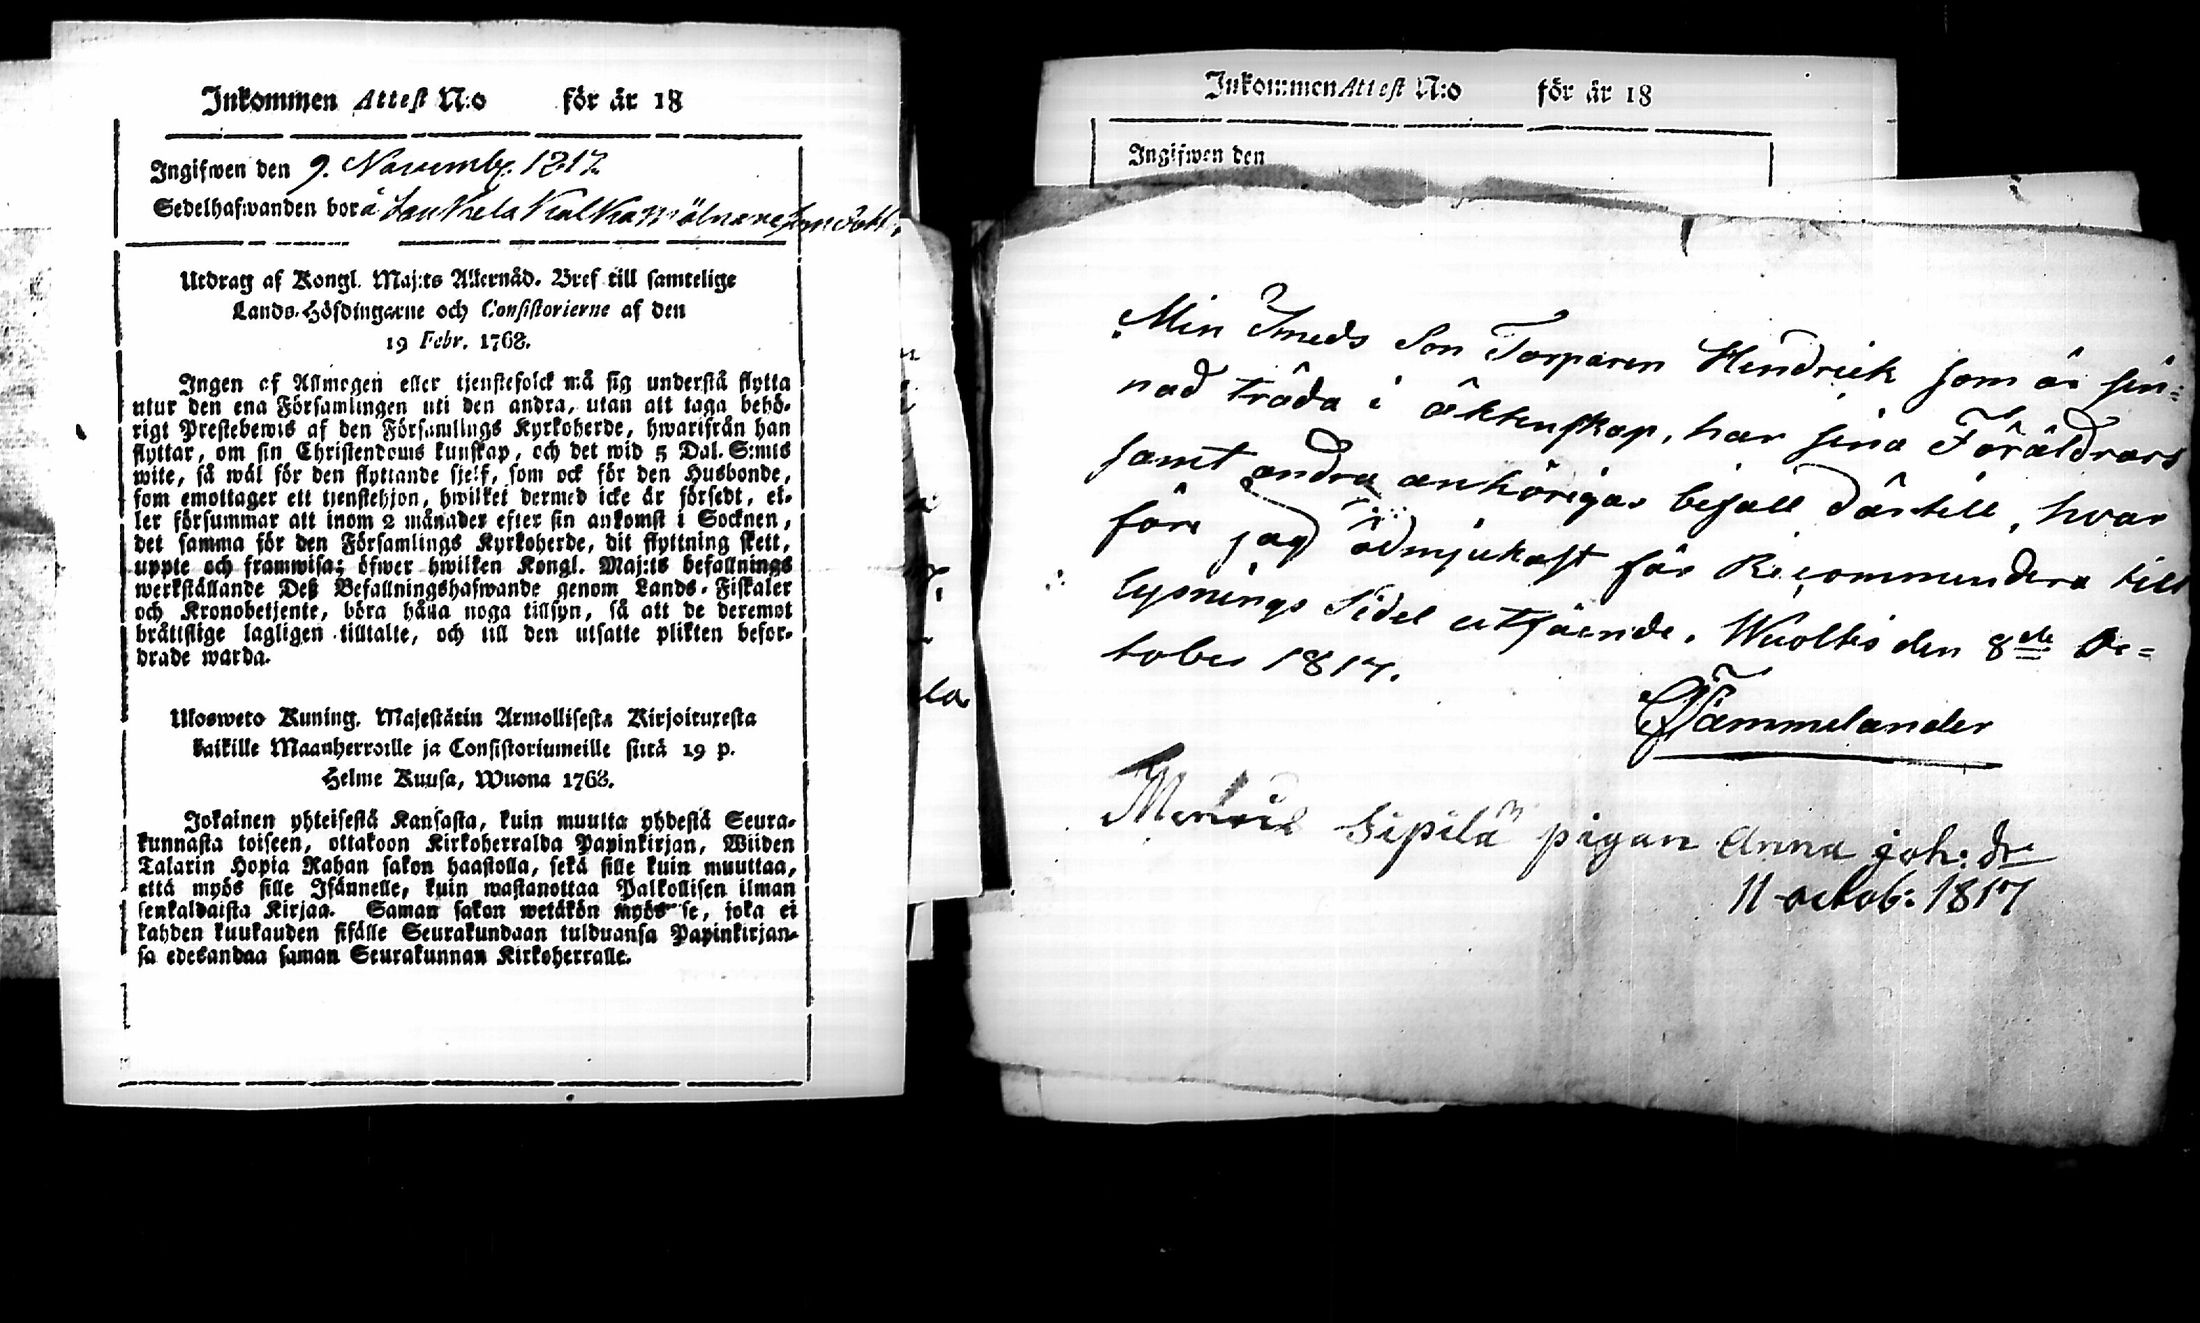 Inkommen Attest N:o för år 18
Ingifwen den 9. Novemb. 1817
Sedelhafwanden bor å
Utdrag af Kongl. Maj:ts Allernåd. Bref till samtelige
Lands-Höfdingarne och Consistorierne af den
19 Febr. 1768.
Ingen af Allmogen eller tjenstefolck må sig understå flytta
utur den ena Församlingen uti den andra, utan att taga behö-
rigt Prestebewis af den Församlings Kyrkoherde, hwarifrån han
flyttar, om sin Christendoms kunskap, och det wid 5 Dal. S:mts
wite, så wäl för den flyttande sjelf, som ock för den Husbonde,
som emottager ett tjenstehjon, hwilket dermed icke är försedt, el-
ler försummar att inom 2 månader efter sin ankomst i Socknen,
det samma för den Församlings Kyrkoherde, dit flyttning skett,
uppte och framwisa; öfwer hwilken Kongl. Maj:ts befallnings
werkställande Deß Befallningshafwande genom Lands-Fiskaler
och Kronobetjente, böra hålla noga tillsyn, så att de deremot
bråttslige lagligen tilltalte, och till den utsatte plikten befor-
drade warda.
Ulosweto Kuning. Majestätin Armollisesta Kirjoituxesta
kaikille Maanherroille ja Consistoriumeille siitä 19 p.
Helme Kuusa, Wuona 1768.
Jokainen yhteisestä Kansasta, kuin muutta yhdestä Seura-
kunnasta toiseen, ottakoon Kirkoherralda Papinkirjan, Wiiden
Talarin Hopia Rahan sakon haastolla, sekä sille kuin muuttaa,
että myös sille Isännelle, kuin wastanottaa Palkollisen ilman
senkaldaista Kirjaa. Saman sakon wetäkön myös se, joka ei
kahden kuukauden sisälle Seurakundaan tulduansa Papinkirjan-
sa edesandaa saman Seurakunnan Kirkoherralle.
Inkommen Attest N:o för år 18
Ingifwen den
Min Smeds Son Torparen Hendrick som är sin=
nad träda i äktenskap, har sina Föräldrars
samt andra anhörigas bifall därtill, hvar
före jag ödmjukast får Recommendera till
lysnings Sidel utfående. Wuoltis den 8de Oc=
tober 1817.
Tammelander
Sipilä pigan Anna joh: dr
11 octob: 1817